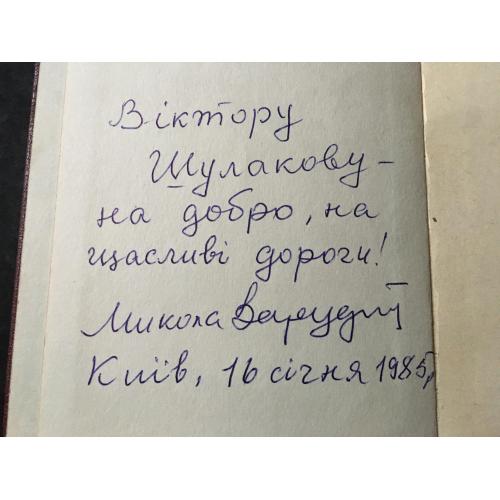 Віктору
Шулакову –
на добро, на
щасливі дороги!
Микола
Київ, 16 січня 1985р